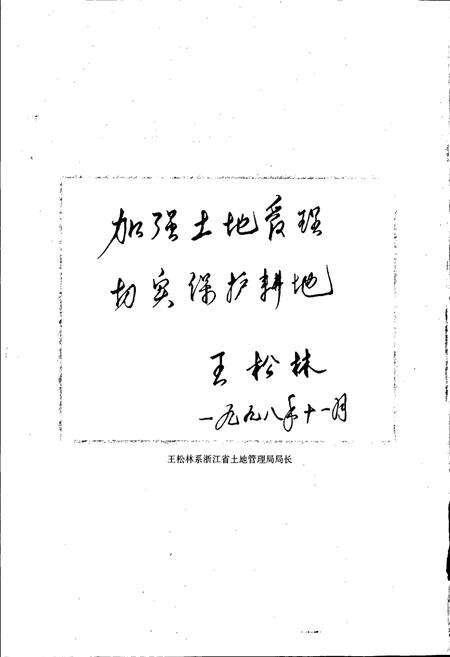 加强土地管理
切实保护耕地
王松林
一九九八年十一月
王松林系浙江省土地管理局局长